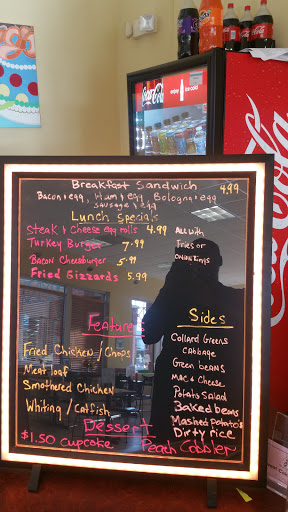 Coca-Cola
enjoy
ice cold
Coca-Cola
Breakfast Sandwich 4.99
Bacon & egg, Ham & egg, Bologna & egg
Sausage & egg
Lunch Specials
Steak & Cheese egg rolls 4.99 All with
Turkey Burger 7.99 Fries or
Bacon Cheesburger 5.99 Onion Rings
Fried Gizzards 5.99
Feature
Fried Chicken / Chops
Meatloaf
Smothered Chicken
Whiting / Catfish
Sides
Collard Greens
Cabbage
Green beans
Mac & Cheese
Potato Salad
Baked beans
Mashed potatoes
Dirty rice
Dessert
$1.50 Cupcake Peach Cobbler